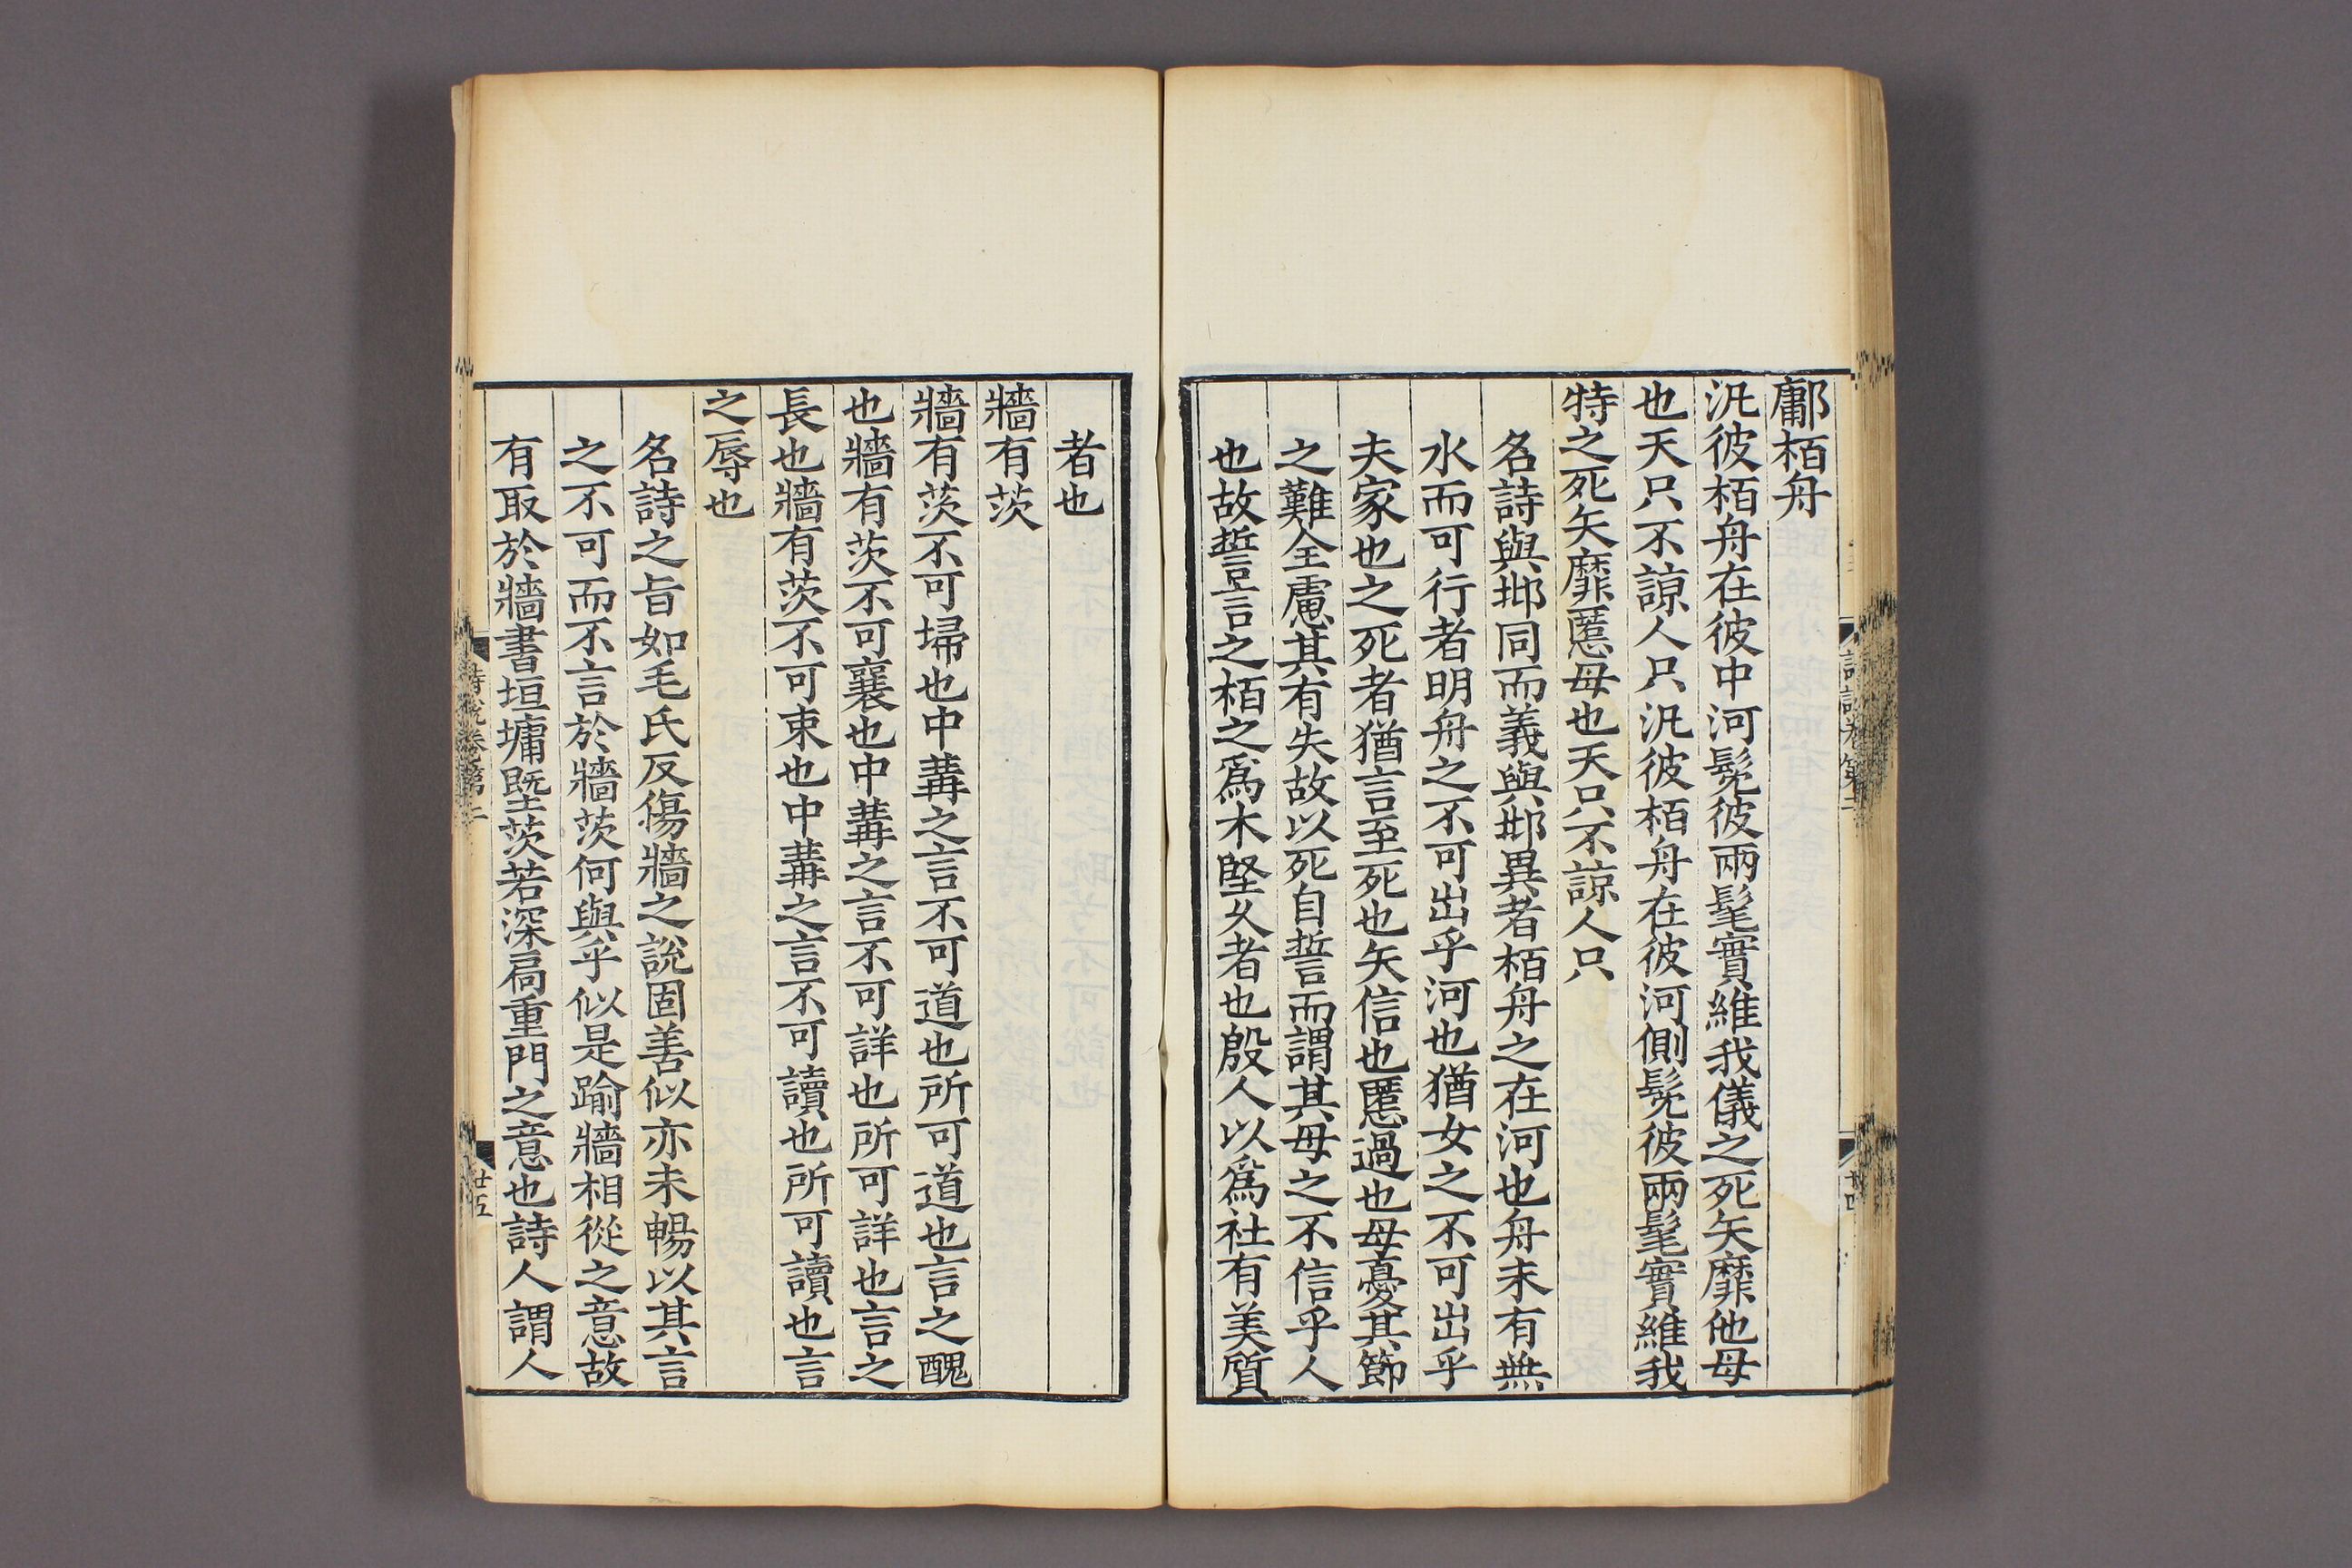 鄘栢舟
汎彼栢舟在彼中河髧彼兩髦實維我儀之死矢靡他母
也天只不諒人只汎彼栢舟在彼河側髧彼兩髦實維我
特之死矢靡慝母也天只不諒人只
名詩與邶同而義與邶異者栢舟之在河也舟未有無
水而可行者明舟之不可出乎河也猶女之不可出乎
夫家也之死者猶言至死也矢信也慝過也母憂其節
之難全慮其有失故以死自誓而謂其母之不信乎人
也故誓言之栢之爲木堅久者也殷人以爲社有美質
詩說卷第二
廿四
者也
牆有茨
牆有茨不可埽也中冓之言不可道也所可道也言之醜
也牆有茨不可襄也中冓之言不可詳也所可詳也言之
長也牆有茨不可束也中冓之言不可讀也所可讀也言
之辱也
名詩之旨如毛氏反傷牆之說固善似亦未暢以其言
之不可而不言於牆茨何與乎似是踰牆相從之意故
有取於牆書垣墉既茨若深扃重門之意也詩人謂人
詩說卷第二
廿五